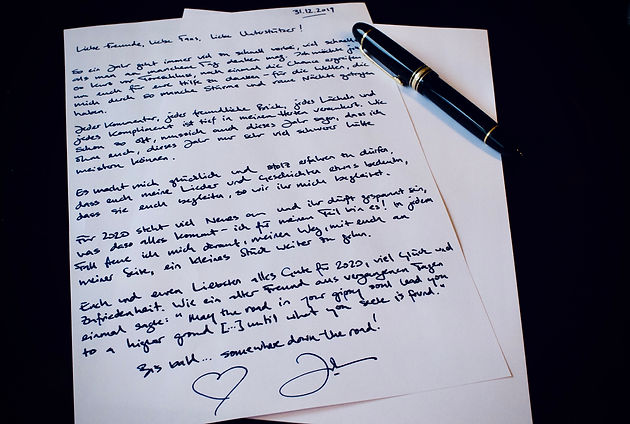 31.12.2019
Liebe Freunde, liebe Fans, liebe Unterstützer!
So ein Jahr geht immer viel zu schnell vorbei, viel schneller
als man an manchem Tag denken mag. Ich möchte
so kurz vor Jahresschluss, noch einmal die Chance ergreifen,
um euch für eure Hilfe zu danken - für die Wellen, die
mich durch so manche Stürme und raue Nächte getragen
haben.
Jeder Kommentar, jeder freundliche Blick, jedes Lächeln und
jedes Kompliment ist tief in meinem Herzen verankert. Wie
schon so oft, muss ich auch dieses Jahr sagen, dass ich
ohne euch, dieses Jahr nur sehr viel schwerer hätte
meistern können.
Es macht mich glücklich und stolz erfahren zu dürfen,
dass euch meine Lieder und Geschichten etwas bedeuten,
dass sie euch begleiten, so wie ihr mich begleitet.
Für 2020 steht viel Neues an und ihr dürft gespannt sein,
was dass alles kommt - ich für meinen Teil bin es! In jedem
Fall freue ich mich darauf, meinen Weg, mit euch an
meiner Seite, ein kleines Stück weiter zu gehn.
Euch und euren Liebsten alles Gute für 2020, viel Glück und
Zufriedenheit. Wie ein alter Freund aus vergangenen Tagen
einmal sagte: "May the road in your gipsy soul lead you
to a higher ground [...] until what you seek is found."
Bis bald... somewhere down the road!